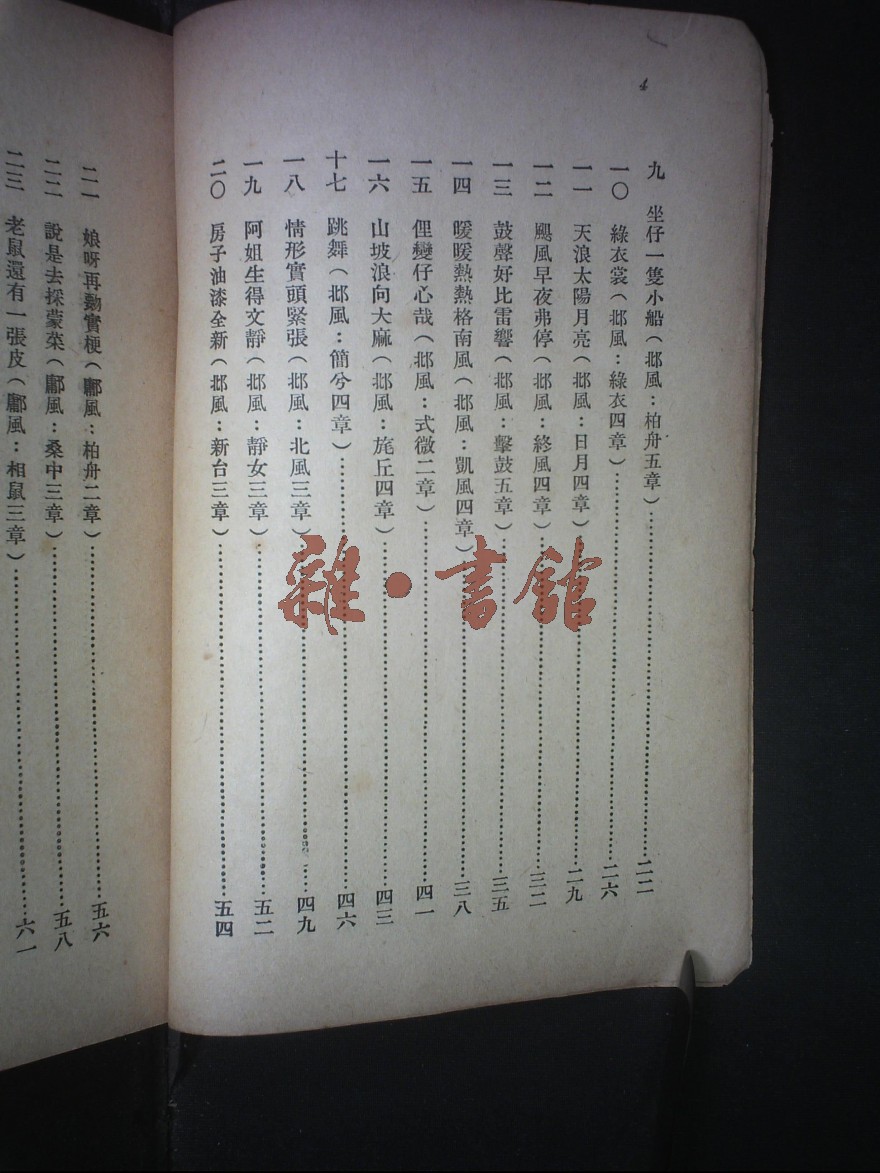 九 坐仔一隻小船（邶風：柏舟五章）……二二
一〇 綠衣裳（邶風：綠衣四章）……二六
一一 天浪太陽月亮（邶風：日月四章）……二九
一二 颶風早夜弗停（邶風：終風四章）……三二
一三 鼓聲好比雷響（邶風：擊鼓五章）……三五
一四 暖暖熱熱格南風（邶風：凱風四章）……三八
一五 俚變仔心哉（邶風：式微二章）……四一
一六 山坡浪向大麻（邶風：旄丘四章）……四三
十七 跳舞（邶風：簡兮四章）……四六
一八 情形實頭緊張（邶風：北風三章）……四九
一九 阿姐生得文靜（邶風：靜女三章）……五二
二〇 房子油漆全新（邶風：新台三章）……五四
二一 娘呀再勥實梗（鄘風：柏舟二章）……五六
二二 說是去採蒙菜（鄘風：桑中三章）……五八
二三 老鼠還有一張皮（鄘風：相鼠三章）……六一
雜·書館